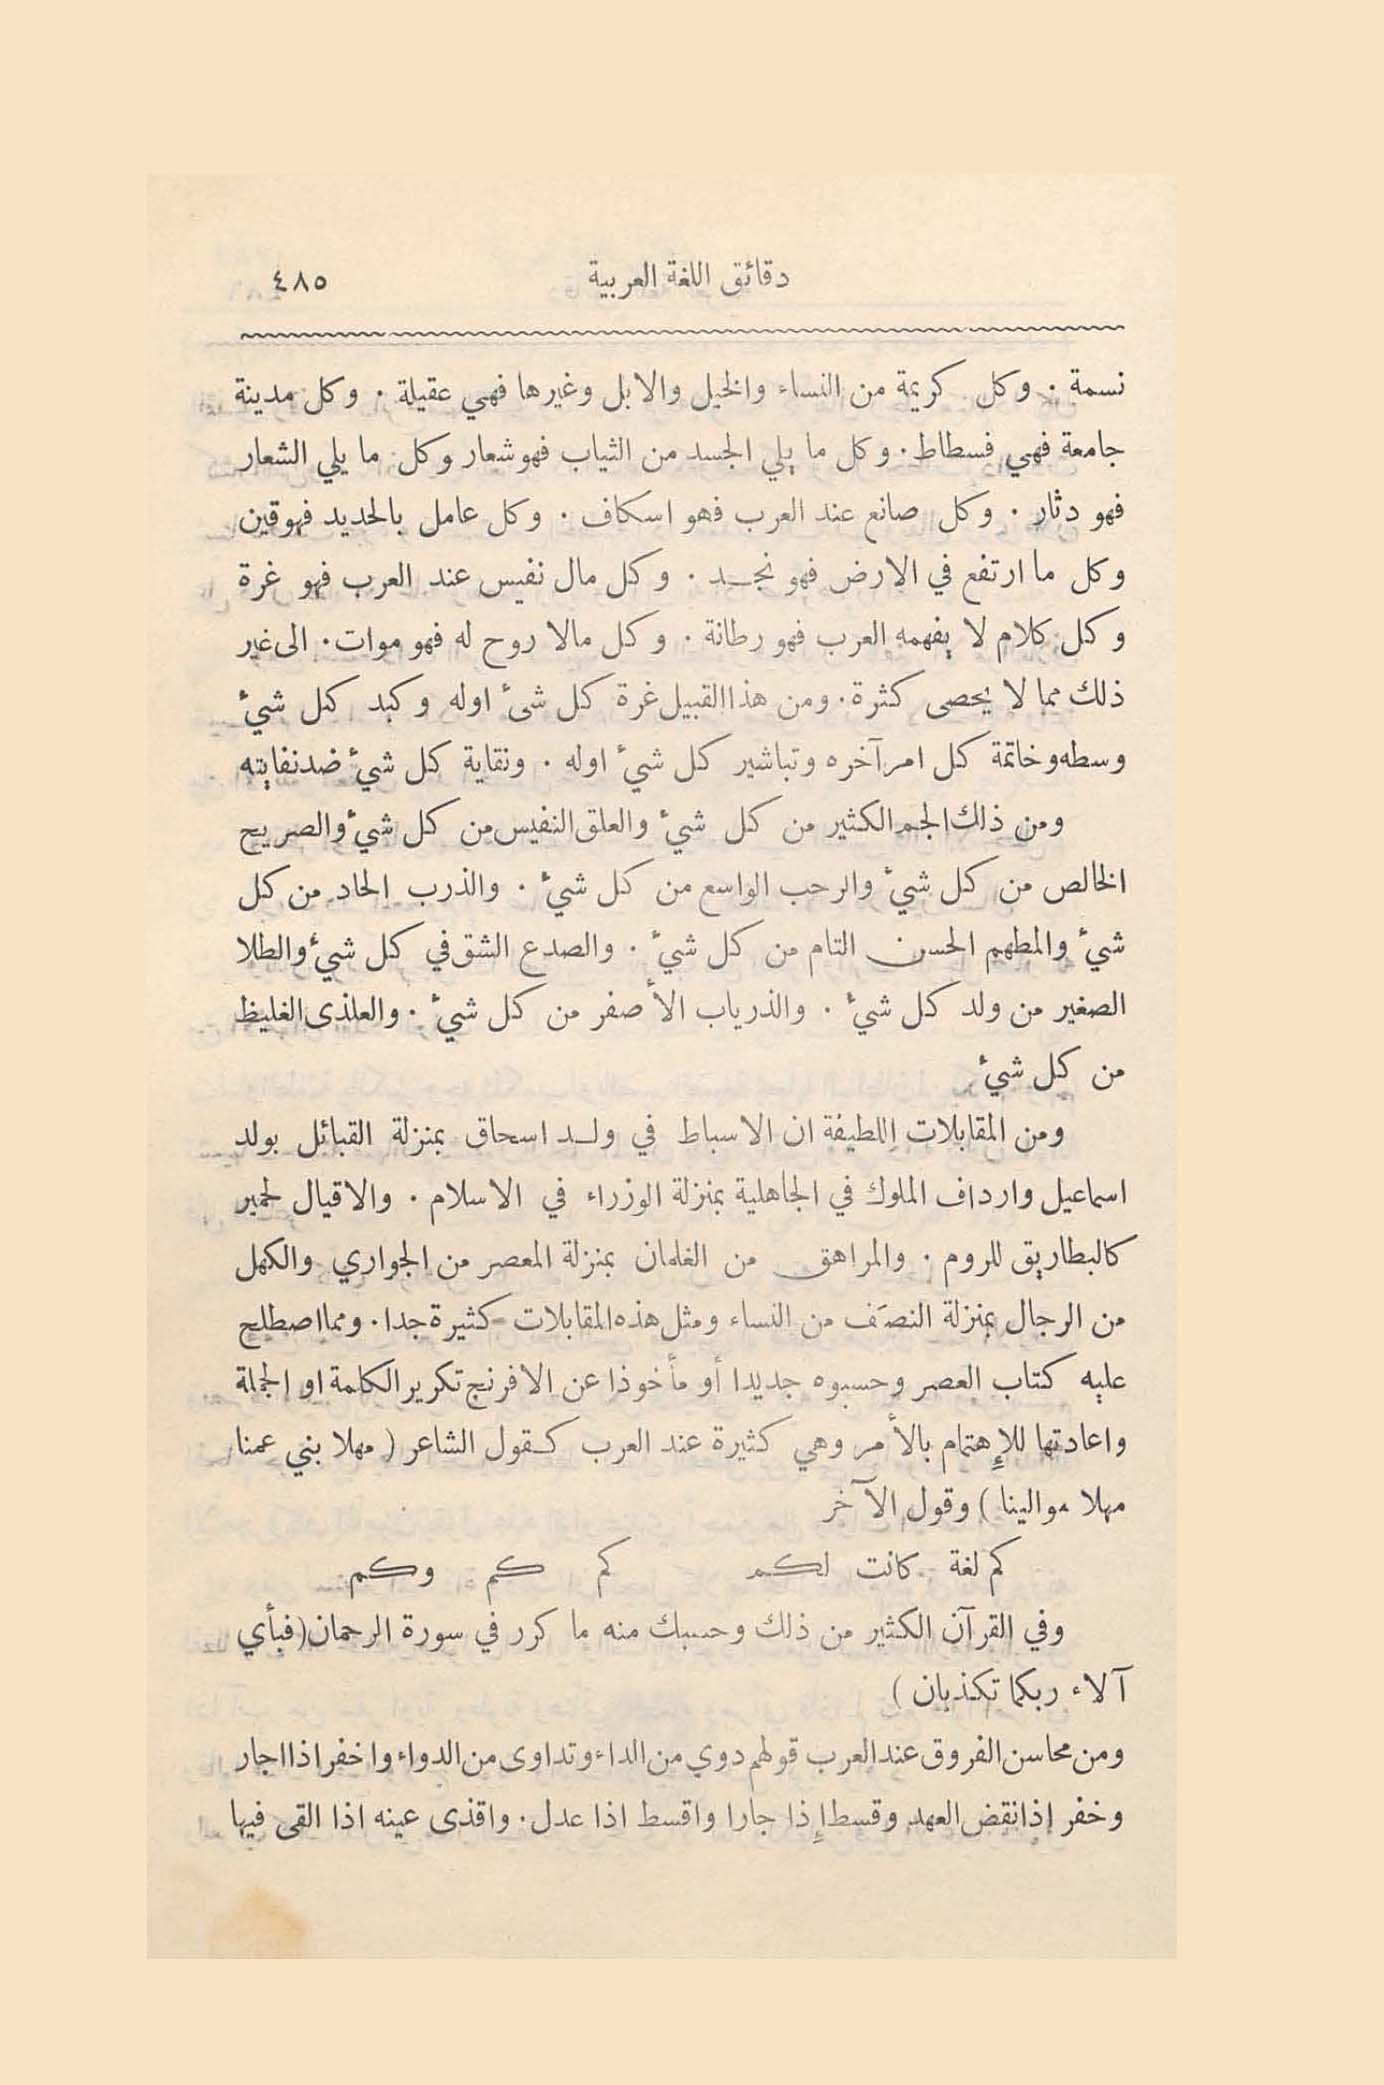 دقائق اللغة العربية ٤٨٥
نسمة . وكل كريمة من النساء والخيل والابل وغيرها فهي عقيلة . وكل مدينة
جامعة فهي فسطاط . وكل ما يلي الجسد من الثياب فهو شعار وكل ما يلي الشعار
فهو دثار . وكل صانع عند العرب فهو اسكاف . وكل عامل بالحديد فهو قين
وكل ما ارتفع في الارض فهو نجد . وكل مال نفيس عند العرب فهو غرة
وكل كلام لا يفهمه العرب فهو رطانة . وكل مالا روح له فهو موات . الى غير
ذلك مما لا يحصى كثرة . ومن هذا القبيل غرة كل شئ اوله وكبد كل شيء
وسطه وخاتمة كل امر آخره وتباشير كل شيء اوله . ونقاية كل شيء ضد نفايته
ومن ذلك الجم الكثير من كل شيء والعلق النفيس من كل شيء والصريح
الخالص من كل شيء والرحب الواسع من كل شيء . والذرب الحاد من كل
شيء والمطهم الحسن التام من كل شيء . والصدع الشق في كل شيء والطلا
الصغير من ولد كل شيء . والذرياب الأصفر من كل شيء . والعلذى الغليظ
من كل شيء
ومن المقابلات اللطيفة ان الاسباط في ولد اسحاق بمنزلة القبائل بولد
اسماعيل وارداف الملوك في الجاهلية بمنزلة الوزراء في الاسلام . والاقيال لحمير
كالبطاريق للروم . والمراهق من الغلمان بمنزلة المعصر من الجواري والكهل
من الرجال بمنزلة النصَف من النساء ومثل هذه المقابلات كثيرة جدا . ومما اصطلح
عليه كتاب العصر وحسبوه جديدا أو مأخوذا عن الافرنج تكرير الكلمة او الجملة
واعادتها للإهتمام بالأمر وهي كثيرة عند العرب كقول الشاعر ( مهلا بني عمنا
مهلا موالينا ) وقول الآخر
كم لغة كانت لكم كم كم وكم
وفي القرآن الكثير من ذلك وحسبك منه ما كرر في سورة الرحمان ( فبأي
آلاء ربكما تكذبان )
ومن محاسن الفروق عند العرب قولهم دوي من الداء وتداوى من الدواء واخفر اذا اجار
وخفر إذا نقض العهد وقسط إذا جارا واقسط اذا عدل . واقذى عينه اذا القى فيها